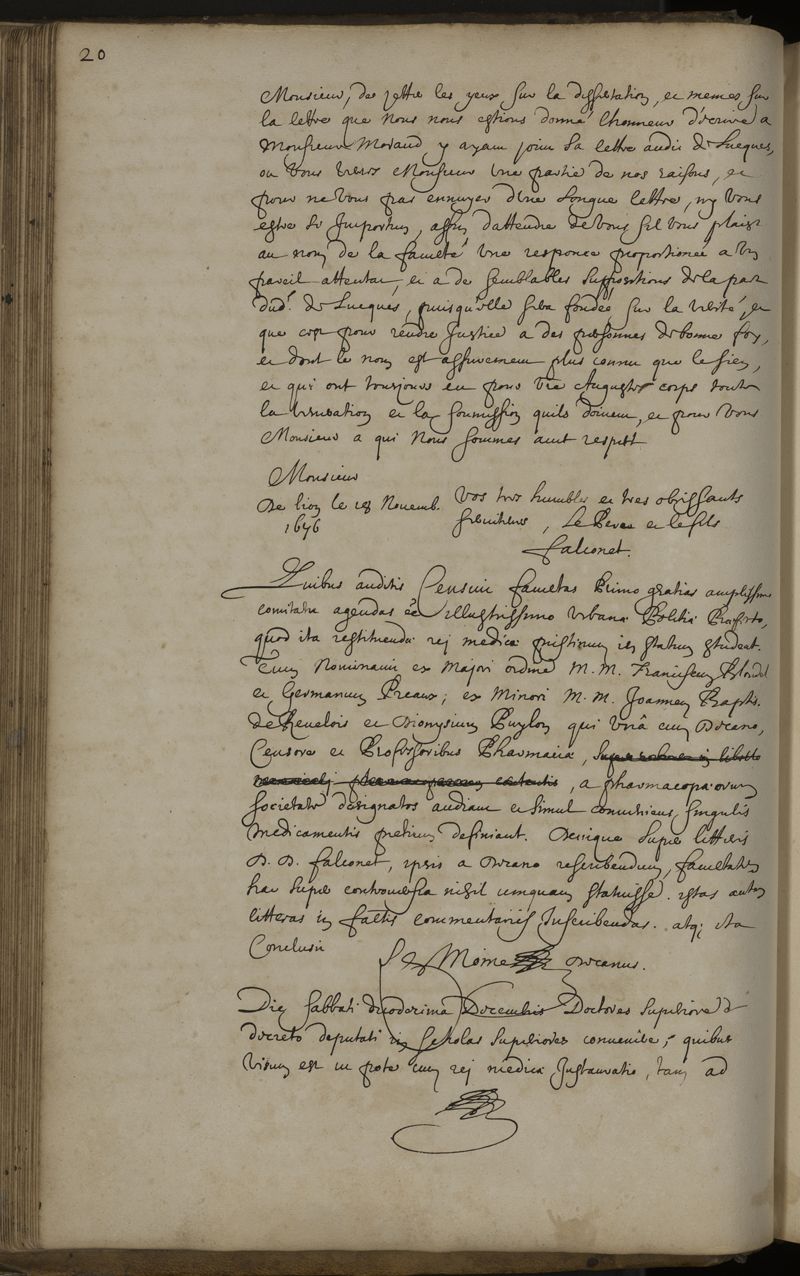 20
Monsieur, de jetter les yeux sur la dissertation, et memes sur
la lettre que nous nous estions donné l'honneur d'ecrire a
Monsieur Morand, y ayant joint sa lettre audit de Lucques,
ou vous verrez Monsieur une partie de nos raisons, et
pour ne vous pas ennuyer d'une longue lettre, ny vous
estre si Importun, affin d'attendre de vous s'il vous plaist
au nom de la faculté une responce proportionée a un
pareil attentat, et a de semblables suppositions de la part
dud.t de Lucques, puisqu'elle sera fondée sur la verité, et
que c'est pour rendre Justice a des personnes de bonne foy,
et dont le nom est assurement plus connu que le sien,
et qui ont tousjours eu pour vre Auguste corps toute
la veneration et la soumission quils doivent, et pour vous
Monsieur a qui nous sommes avec respect
Monsieur
De lion le 18 Novemb. Vos tres humbles et tres obeissants
1676 serviteurs, Le Pere et le fils
falconet.
Quibus auditis Censuit facultas Primo gratias amplissimo
comitatu agendas ēē illustrissimo urbanæ Politiæ Præfecto,
quod ita restituendæ rei medicæ pristinum in statum studeat.
Tum Nominavit ex Majori ordine M. M. Franciscum Blondel
et Germanum Preaux; ex Minori M. M. Joannem Bapt.
de Revelois et Dionysium Puylon qui unâ cum Decano,
Censore et Professoribus Pharmaciæ, a pharmacopæorum
societate designatos audiant et simul convenient, singulis
medicamentis pretium definiant. Denique super litteris
D. D. falconet, ipsis a Decano rescribendum, facultatem
hac super controversia nihil umquam statuisse. istas autem
litteras in faclis commentariis Inscribendas. atq; ita
Conclusit
Le Moine Decanus.
Die sabbati duodecima Decembris Doctores superiore
decreto deputati in scholas superiores convenere; quibus
visum est ut pote cum rei medicæ Instauratio, tam ad